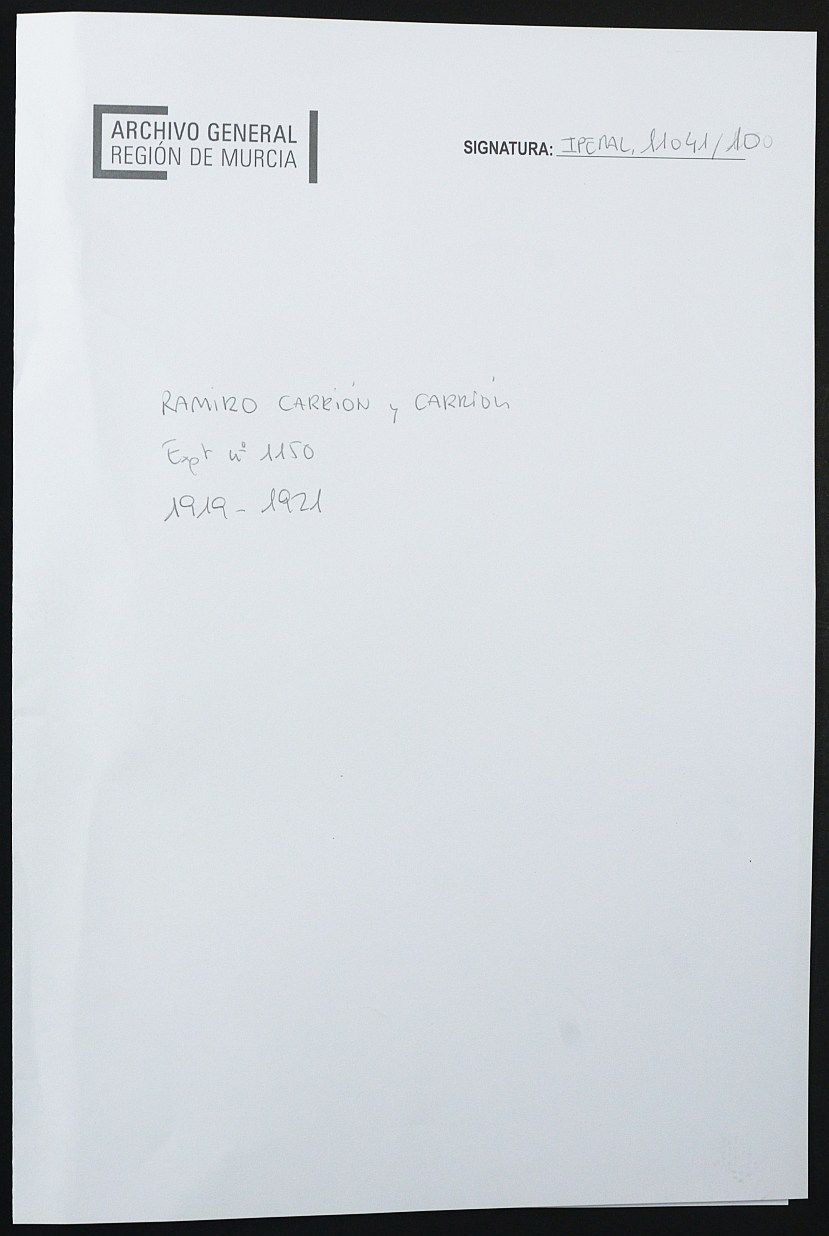 ARCHIVO GENERAL
REGIÓN DE MURCIA
SIGNATURA: IPERAL, 11041/100
RAMIRO CARRIÓN y CARRIÓN
Expt nº 1150
1919 - 1921